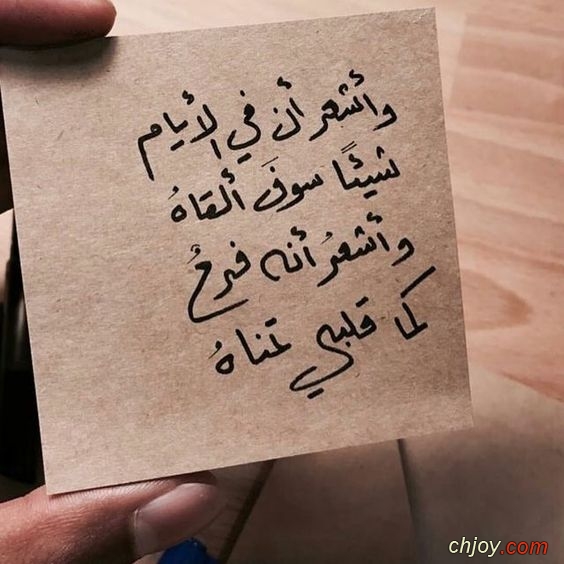 وأشعر أن في الأيام
شيئًا سوفَ ألقاهُ
وأشعرُ أنه فرحٌ
كما قلبي تمناهُ
chjoy.com